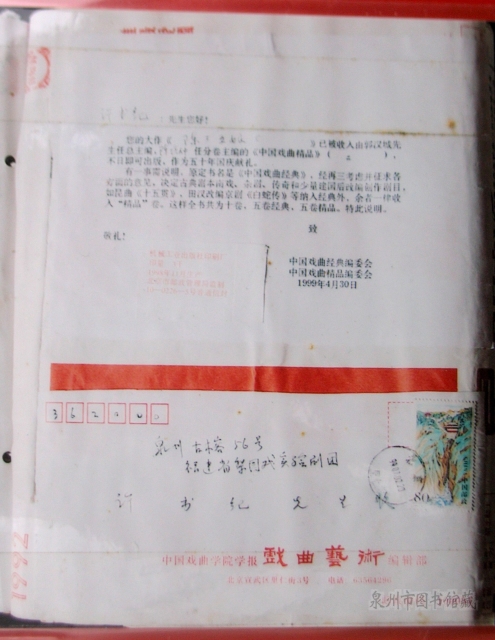 先生您好！
您的大作《
》已被收入由郭汉城先
生任总主编、 任分卷主编的《中国戏曲精品》（ ），
不日即可出版，作为五十年国庆献礼。
有一事需说明。原定书名是《中国戏曲经典》，经再三考虑并征求各
方面的意见，决定古典剧本南戏、杂剧、传奇和少量建国后改编创作剧目，
如昆曲《十五贯》、田汉改编京剧《白蛇传》等纳入经典外，余者一律收
入“精品”卷。这样全书共为十卷，五卷经典，五卷精品。特此说明。
致
敬礼！
中国戏曲经典编委会
中国戏曲精品编委会
1999年4月30日
362000
泉州 56号
福建省梨园戏实验剧团
许书纪先生
80
中国邮政
中国戏曲学院学报 戏曲藝術 编辑部
北京宣武区里仁街3号 电话
泉州市图书馆藏
1992